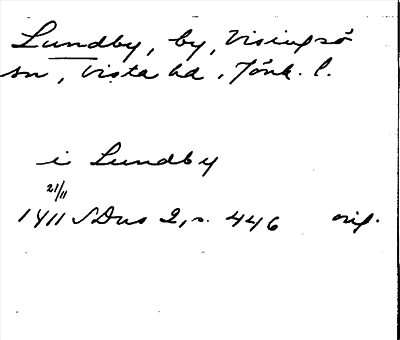 Lundby, by, Visingsö
sn, Vista hd, Jönk. l.
i Lundby
21/11
1411 SDns 2, s. 446 orig.